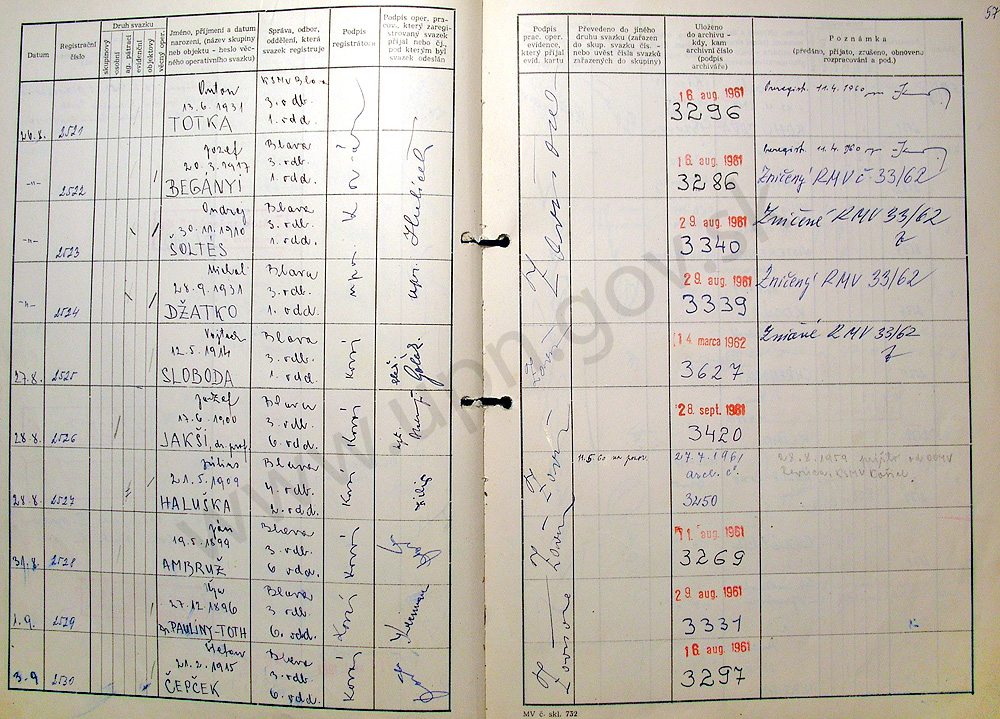 57
Datum
Registrační
číslo
Druh svazku
skupinový
osobní
ag. pátrací
evidenční
objektový
věcný oper.
Jméno, příjmení a datum
narození, (název skupiny
neb objektu - heslo věc-
ného operativního svazku)
Správa, odbor,
oddělení, která
svazek registruje
Podpis
registrátora
Podpis oper. prac-
cov. který zaregi-
stroval svazek
přijal nebo čj.,
pod kterým byl
svazek odeslán
Podpis
prac. oper.
evidence,
který přijal
evid. kartu
Převedeno do jiného
druhu svazku (zařazen
do skup. svazku čís. -
nebo uvést čísla svazků
zařazených do skupiny)
Uloženo
do archivu -
kdy, kam
archivní číslo
(podpis
archiváře)
Poznámka
(předáno, přijato, zrušeno, obnoveno
rozpracování a pod.)
26.8. 2521
Anton
13.6.1931
TOTKA
KSMV Blava
3. odb.
1. odd.
16 aug. 1961
3296
11.4.1960
-"- 2522
Jozef
20.3.1917
BEGÁNYI
Blava
3. odb.
1. odd.
16 aug. 1961
3286
11.4.1960
Zničený RMV č. 33/62
-"- 2523
Ondrej
30.11.1910
ŠOLTÉS
Blava
3. odb.
1. odd.
29 aug. 1961
3340
Zničené RMV 33/62
-"- 2524
Michal
28.9.1931
DŽATKO
Blava
3. odb.
1. odd.
29 aug. 1961
3339
Zničený RMV 33/62
27.8. 2525
Vojtech
12.5.1914
SLOBODA
Blava
3. odb.
1. odd.
Kováč
14 marca 1962
3627
Zničené RMV 33/62
28.8. 2526
Jozef
17.6.1900
JAKŠI, dr. prof.
Blava
3. odb.
6. odd.
Kováč
28 sept. 1961
3420
28.8. 2527
Július
21.5.1909
HALUŠKA
Blava
4. odb.
2. odd.
Kováč
11.5.60
27.7.1961
arch. č.
3450
28.8.1959
31.8. 2528
Ján
19.5.1899
AMBRUŽ
Blava
3. odb.
6. odd.
Kováč
11 aug. 1961
3269
1.9. 2529
27.12.1896
PAULINY-TOTH
Blava
3. odb.
6. odd.
Kováč
29 aug. 1961
3331
3.9 2530
Štefan
21.2.1915
ČEPČEK
Blava
3. odb.
6. odd.
Kováč
16 aug. 1961
3297
MV č. skl. 752